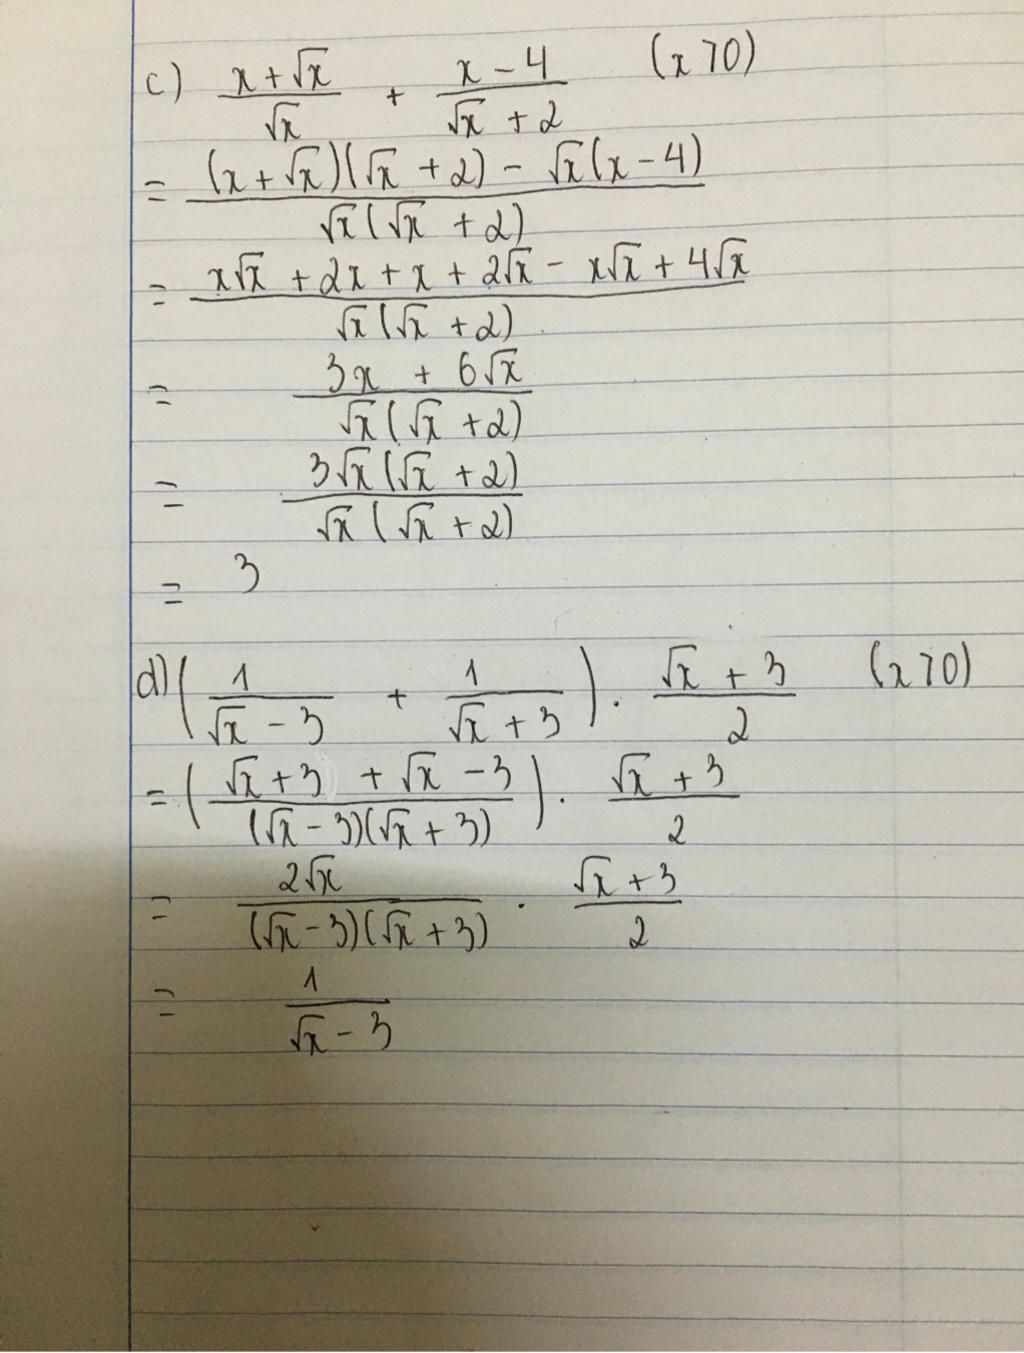 c) (x + √x)/√x + (x - 4)/(√x + 2) (x > 0)
= ((x + √x)(√x + 2) - √x(x - 4))/(√x(√x + 2))
= (x√x + 2x + x + 2√x - x√x + 4√x)/(√x(√x + 2))
= (3x + 6√x)/(√x(√x + 2))
= (3√x(√x + 2))/(√x(√x + 2))
= 3
d) (1/(√x - 3) + 1/(√x + 3)) . (√x + 3)/2 (x > 0)
= ((√x + 3 + √x - 3)/((√x - 3)(√x + 3))) . (√x + 3)/2
= 2√x/((√x - 3)(√x + 3)) . (√x + 3)/2
= 1/(√x - 3)